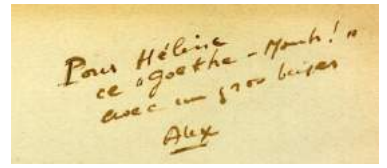 Pour Hélène
ce "Goethe - Mounh! "
avec un gros baiser
Alex